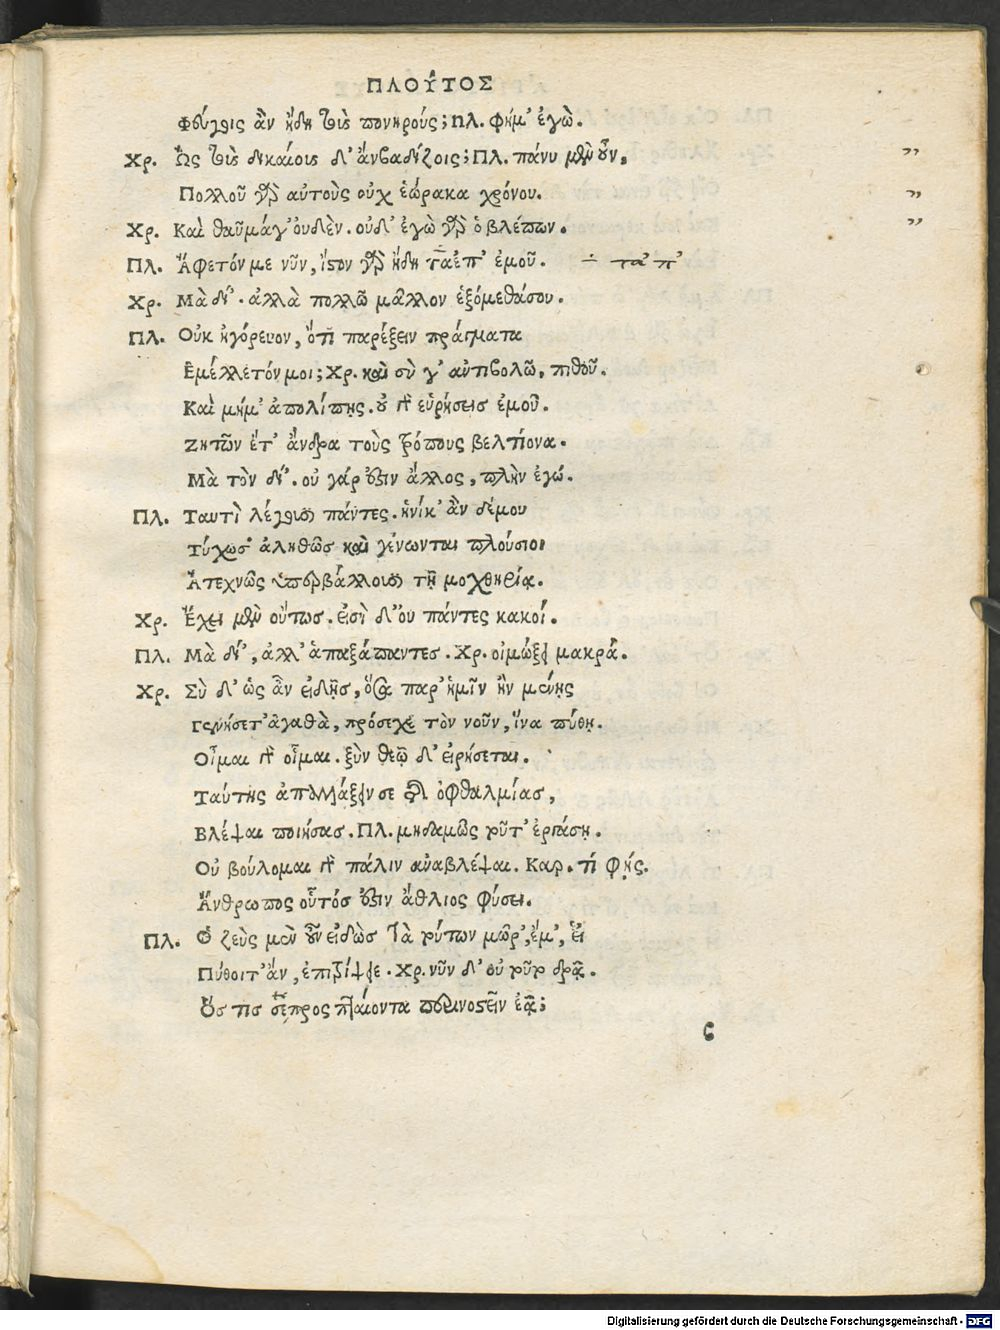 ΠΛΟΥ͂ΤΟΣ
φεύγεις ἂν ἤδη τοὺς πονηρούς; Πλ. φήμ' ἐγὼ.
Χρ. Ὡς τοὺς δικαίους δ' ἂν βαδίζοις; Πλ. πάνυ μὲν οὖν, ”
Πολλοῦ γὰρ αὐτοὺς οὐχ ἑώρακα χρόνου. ”
Χρ. Καὶ θαῦμάγ' οὐδὲν. οὐδ' ἐγὼ γὰρ ὁ βλέπων. ”
Πλ. Ἄφετόν με νῦν, ἴστον γὰρ ἤδη τἀεπ' ἐμοῦ. ÷ τἀπ'
Χρ. Μὰ δί'. ἀλλὰ πολλῶ μᾶλλον ἑξόμεθάσου.
Πλ. Οὐκ ἠγόρευον, ὅτι παρέξειν πράγματα
Ἐμέλλετόν μοι; Χρ. καὶ σὺ γ' ἀντιβολῶ, πιθοῦ.
Καὶ μήμ' ἀπολίπῃς. οὐ γὰρ εὑρήσεις ἐμοῦ.
Ζητῶν ἔτ' ἄνδρα τοὺς τρόπους βελτίονα.
Μὰ τὸν δί'. οὐ γάρ ἐστιν ἄλλος, πλὴν ἐγώ.
Πλ. Ταυτὶ λέγουσι πάντες. ἡνίκ' ἂν δέμου
Τύχωσ' ἀληθῶς καὶ γένωνται πλούσιοι
Ἀτεχνῶς ὑπερβάλλουσι τῇ μοχθηρίᾳ.
Χρ. Ἔχει μὲν οὕτως. εἰσὶ δ' οὐ πάντες κακοί.
Πλ. Μὰ δί', ἀλλ' ἁπαξάπαντες. Χρ. οἰμώξει μακρά.
Χρ. Σὺ δ' ὡς ἂν εἰδῇς, ὅσα παρ' ἡμῖν ἢν μένῃς
Γενήσετ' ἀγαθὰ, πρόσεχε τὸν νοῦν, ἵνα πύθῃ.
Οἶμαι γὰρ οἶμαι. ξὺν θεῷ δ' εἰρήσεται.
Ταύτης ἀπαλλάξειν σε τῆς ὀφθαλμίας,
Βλέψαι ποιήσας. Πλ. μηδαμῶς τοῦτ' ἐργάσῃ.
Οὐ βούλομαι γὰρ πάλιν ἀναβλέψαι. Καρ. τί φῄς.
Ἄνθρωπος οὗτός ἐστιν ἄθλιος φύσει.
Πλ. Ὁ ζεὺς μὲν οὖν εἰδὼς τὰ τούτων μῶρ', ἔμ', εἰ
Πύθοιτ' ἄν, ἐπιτρίψειε. Χρ. νῦν δ' οὐ τοῦτο δρᾷ.
Ὅς τις σε προσπταίοντα περινοστεῖν ἐᾷ;
ς
Digitalisierung gefördert durch die Deutsche Forschungsgemeinschaft - DFG